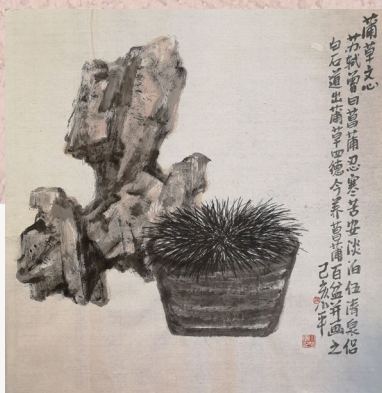 蒲草文心
苏轼曾曰菖蒲忍寒苦安淡泊伍清泉侣
白石道出蒲草四德今养菖蒲百盆并画之
己亥